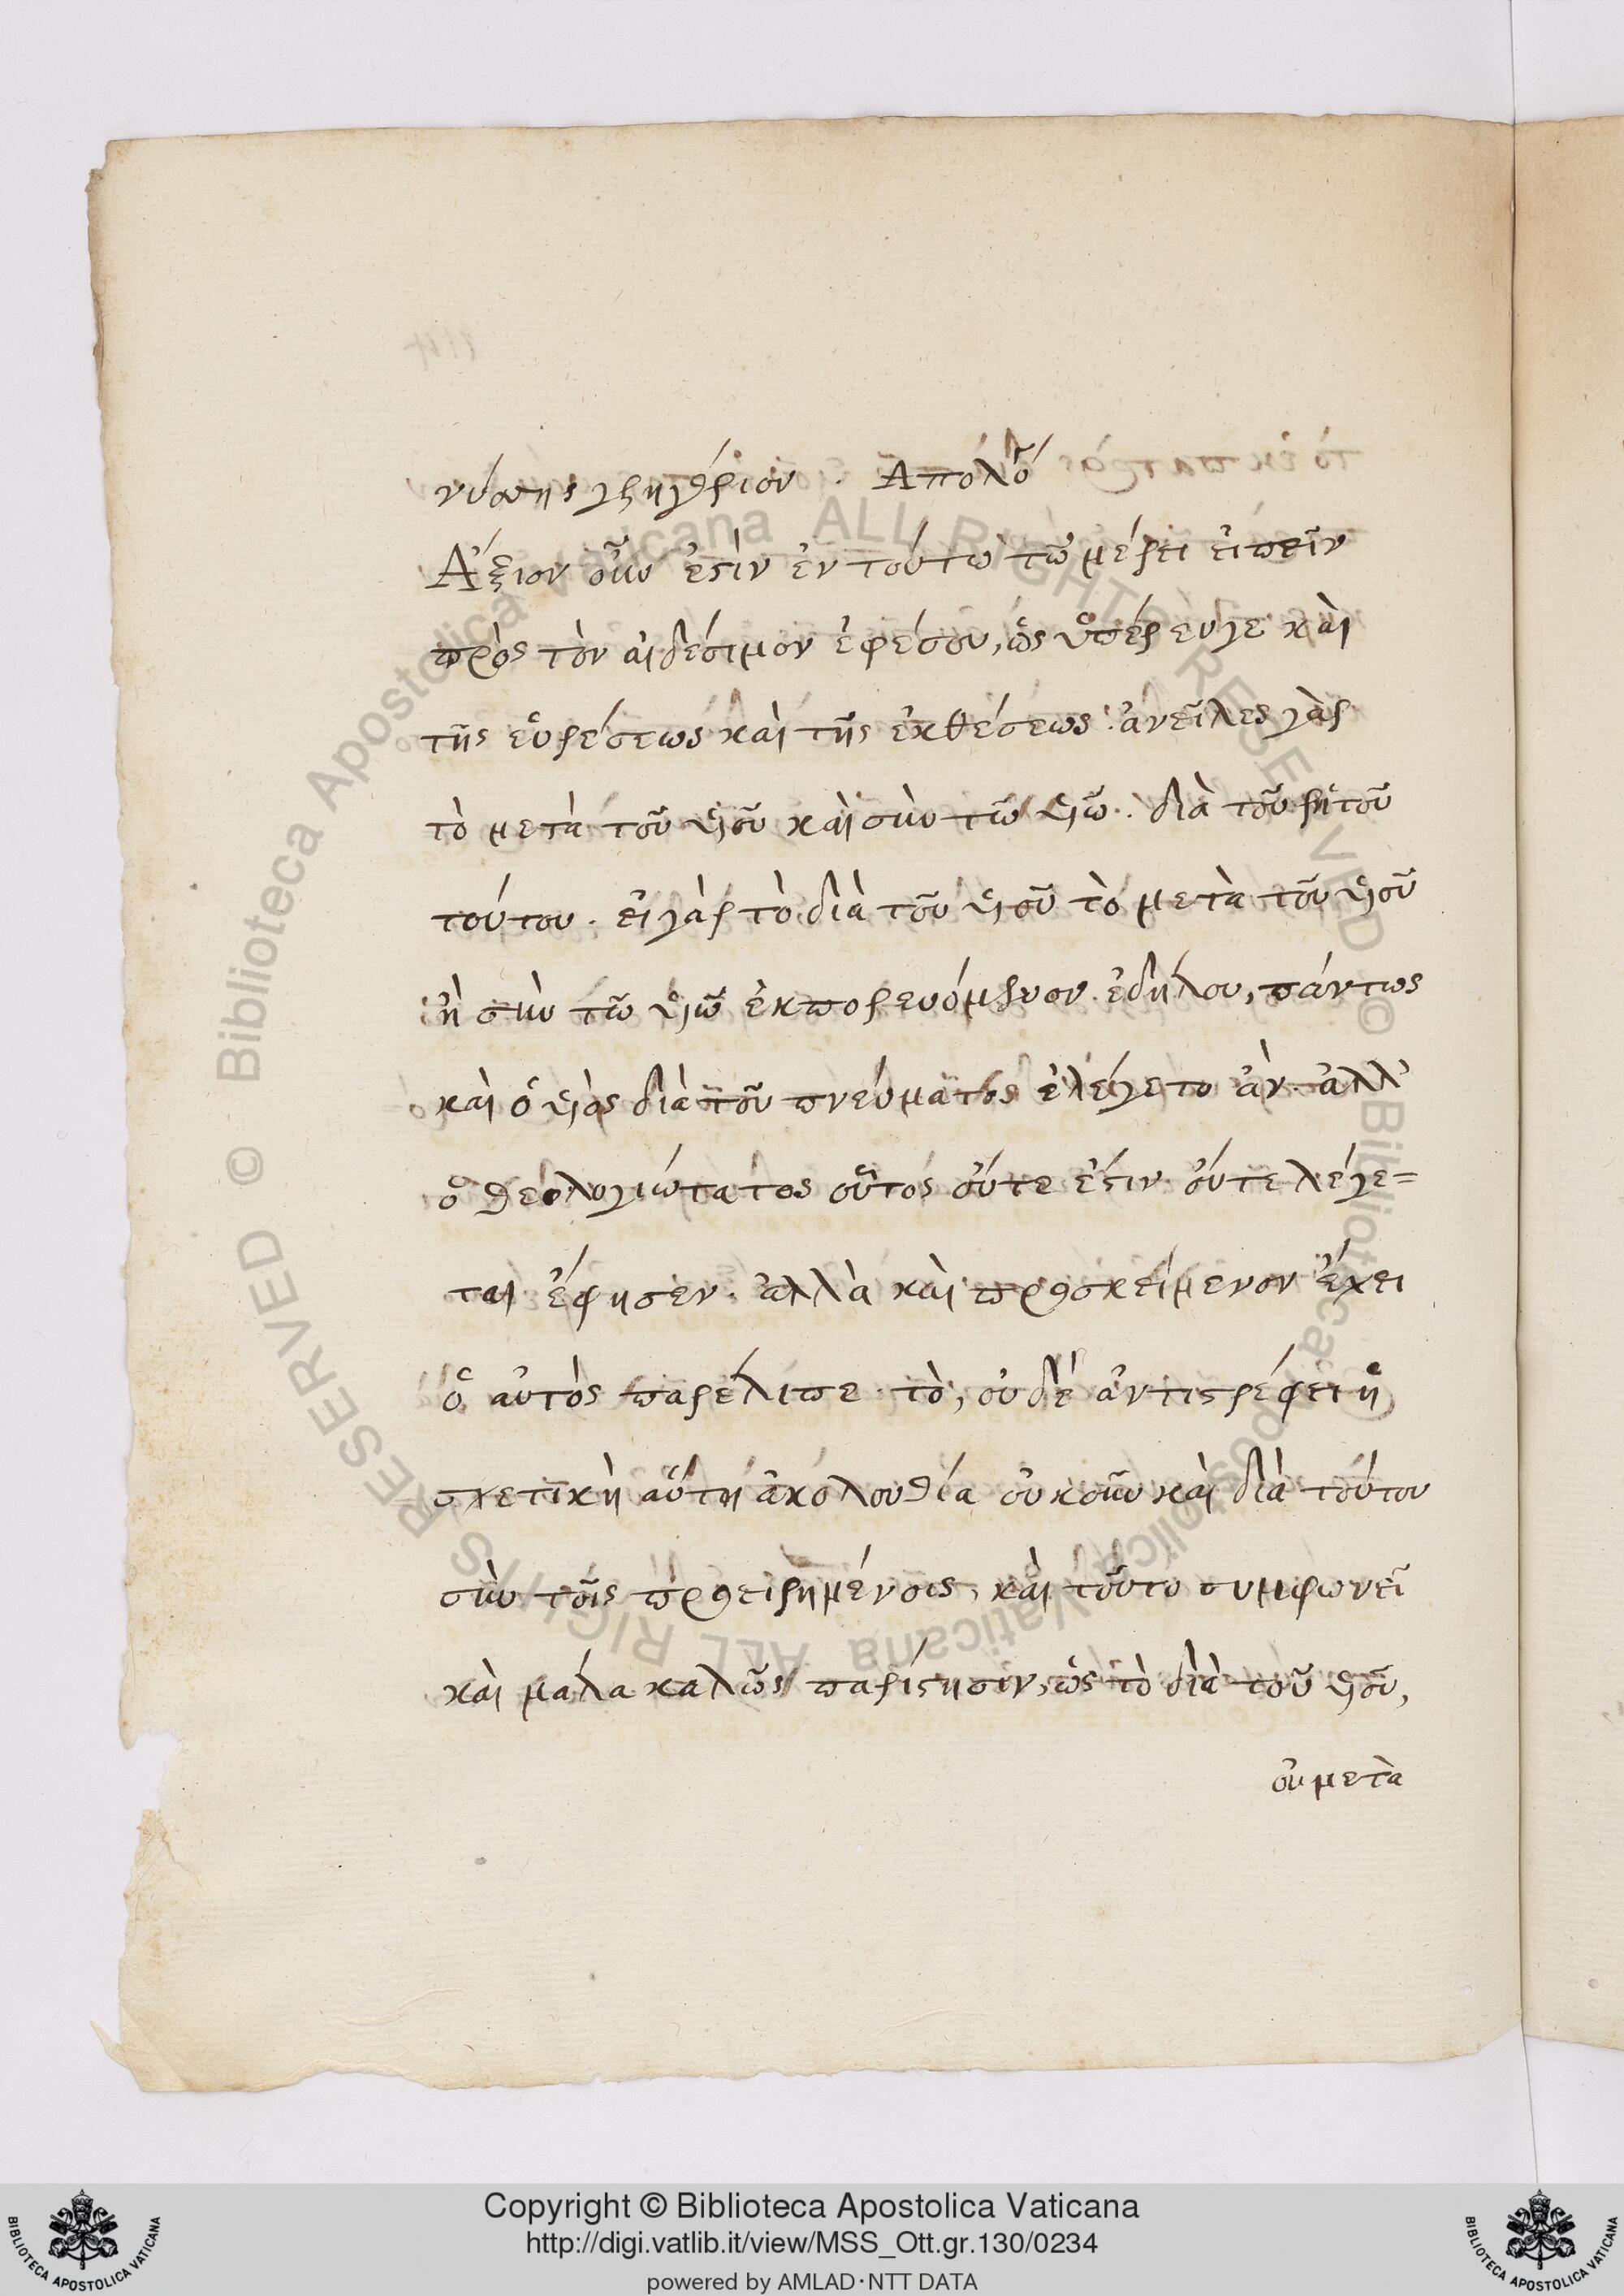 νύσσης γρηγόριον. Απολο
Ἄξιον οὖν ἐστὶν ἐν τούτω τῶ μέρει εἰπεῖν
πρὸς τὸν αἰδέσιμον ἐφέσου, ὡς ὑπέρευγε καὶ
τῆς εὑρέσεως καὶ τῆς ἐκθέσεως. ἀνεῖλες γὰρ
τὸ μετὰ τοῦ υἱοῦ καὶ σὺν τῶ υἱῶ. διὰ τοῦ ῥητοῦ
τούτου. εἰ γὰρ τὸ διὰ τοῦ υἱοῦ τὸ μετὰ τοῦ υἱοῦ
ἢ σὺν τῶ υἱῶ ἐκπορευόμενον ἐδήλου, πάντως
καὶ ὁ υἱὸς διὰ τοῦ πνεύματος ἐλέγετο ἄν. ἀλλ'
ὁ θεολογιώτατος οὗτος οὔτε ἔστιν οὔτε λέγε=
ται ἔφησεν. ἀλλὰ καὶ προσκείμενον ἔχει
ὃ αὐτὸς παρέλιπε. τὸ, οὐδὲ ἀντιστρέφει ἡ
σχετικὴ αὕτη ἀκολουθία οὐκοῦν καὶ διὰ τούτου
σὺν τοῖς προειρημένοις, καὶ τοῦτο συμφωνεῖ
καὶ μάλα καλῶς παρίστησιν, ὡς τὸ διὰ τοῦ υἱοῦ,
οὐ μετὰ
Copyright © Biblioteca Apostolica Vaticana
http://digi.vatlib.it/view/MSS_Ott.gr.130/0234
powered by AMLAD·NTT DATA
BIBLIOTECA APOSTOLICA VATICANA
BIBLIOTECA APOSTOLICA VATICANA
© Biblioteca Apostolica Vaticana ALL RIGHTS RESERVED
© Biblioteca Apostolica Vaticana ALL RIGHTS RESERVED